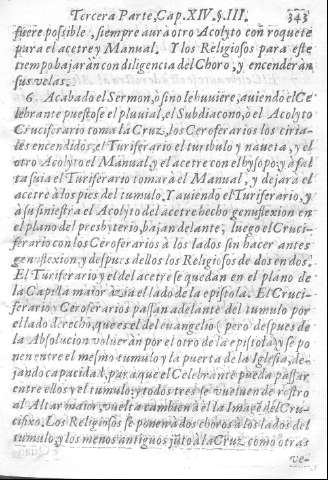 Tercera Parte, Cap. XIV. §. III. 343
fuere possible, siempre aurà otro Acolyto con roquete
para el acetre y Manual. Y los Religiosos para este
tiempo bajaràn con diligencia del Choro, y encenderàn
sus velas.
6. Acabado el Sermon, ò si no le huuiere, auiendo el Ce
lebrante puestose el pluuial, el Subdiacono, ò el Acolyto
Cruciferario toma la Cruz, los Ceroferarios los ciria-
les encendidos, el Turiferario el turibulo y naueta, y el
otro Acolyto el Manual, y el acetre con el hysopo; y à fal
ta suia el Turiferario tomarà el Manual, y dejarà el
acetre à los pies del tumulo. Y auiendo el Turiferario, y
à su siniestra el Acolyto del acetre hecho genuflexion en
el plano del presbyterio, bajan delante, luego el Cruci-
ferario con los Ceroferarios à los lados sin hacer antes
genuflexion, y despues dellos los Religiosos de dos en dos.
El Turiferario y el del acetre se quedan en el plano de
la Capilla maior àzia el lado de la epistola. El Cruci-
ferario y Ceroferarios passan adelante del tumulo por
el lado derecho, que es el del euangelio (pero despues de
la Absolucion volueràn por el otro de la epistola) y se po
nen entre el mesmo tumulo y la puerta de la Iglesia, de-
jando capacidad, par que el Celebrante pueda passar
entre ellos y el tumulo: y todos tres se vueluen de rostro
al Altar maior, vuelta tambien à el la Image del Cru-
cifixo. Los Religiosos se ponen à dos choros à los lados del
tumulo, y los menos antiguos jũto à la Cruz como otras
ve-